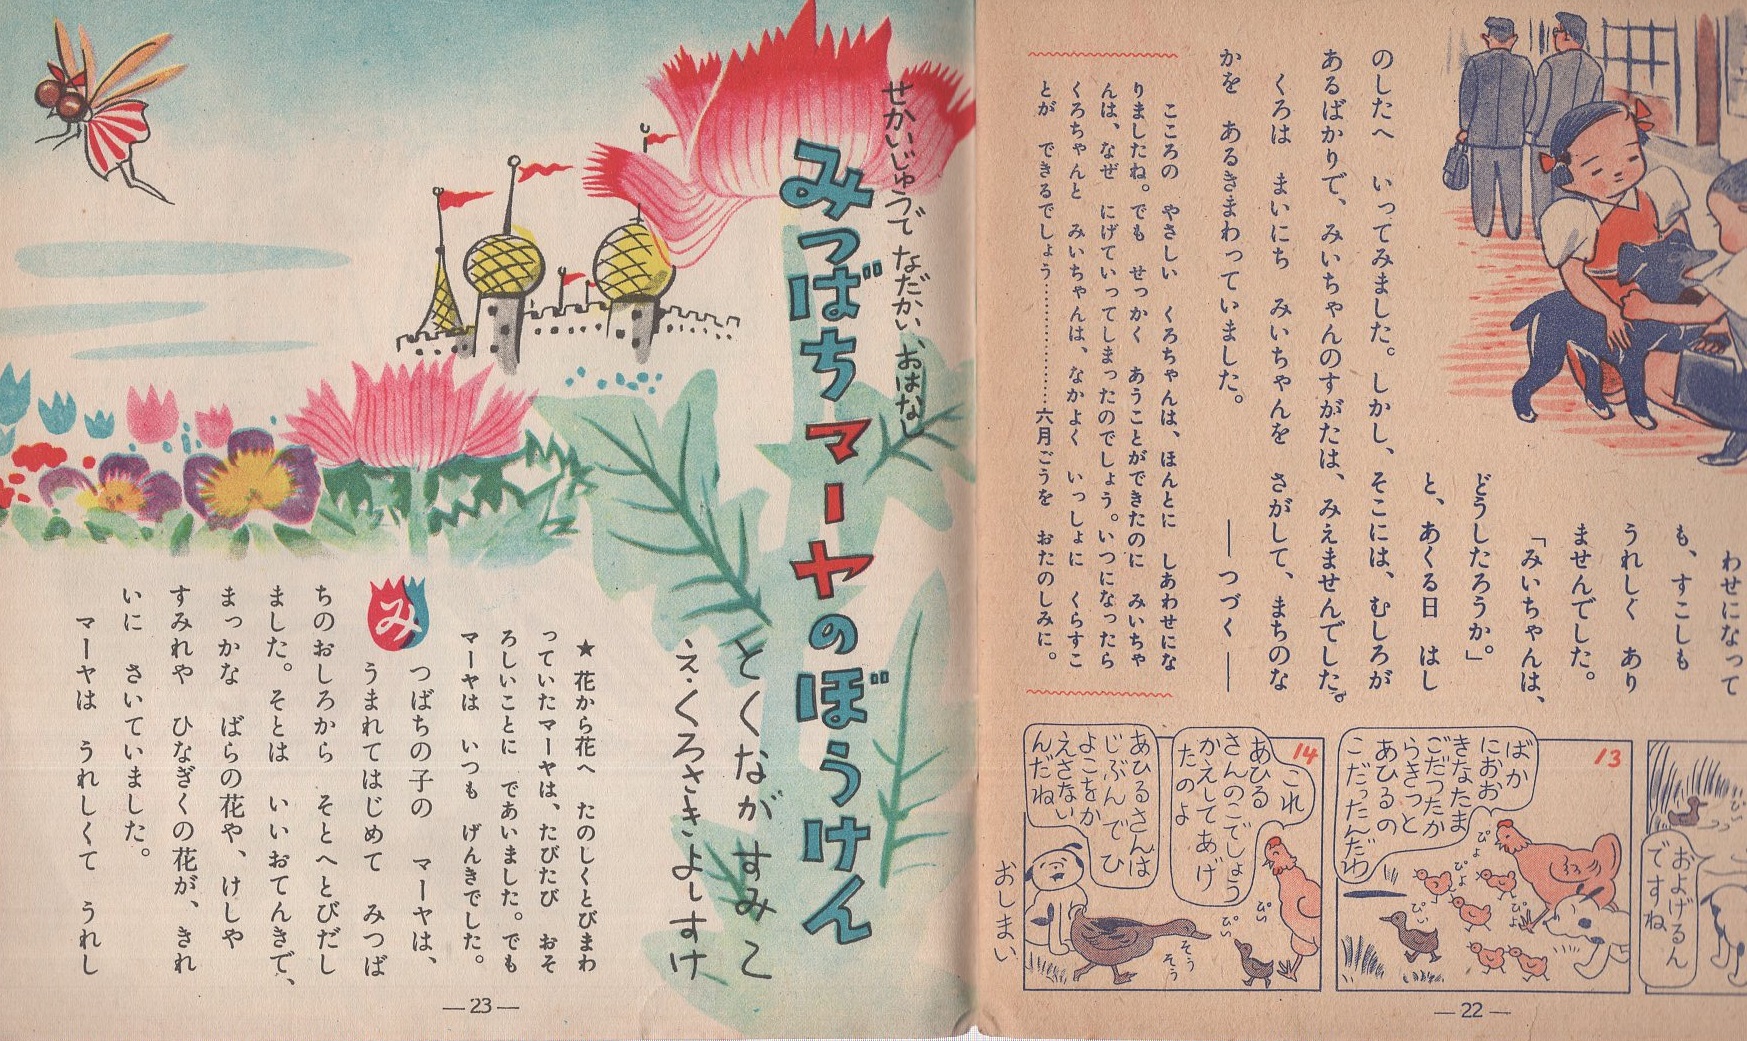 わせになって
も、すこしも
うれしく　あり
ませんでした。
「みいちゃんは、
どうしたろうか。」
と、あくる日　はし
のしたへ　いってみました。しかし、そこには、むしろが
あるばかりで、みいちゃんのすがたは、みえませんでした。
くろは　まいにち　みいちゃんを　さがして、まちのな
かを　あるきまわっていました。
――つづく――
こころの　やさしい　くろちゃんは、ほんとに　しあわせにな
りましたね。でも　せっかく　あうことができたのに　みいちゃ
んは、なぜ　にげていってしまったのでしょう。いつになったら
くろちゃんと　みいちゃんは、なかよく　いっしょに　くらすこ
とが　できるでしょう…………六月ごうを　おたのしみに。
およげるん
ですね
13
ばか
におお
きなたま
ごだつたか
らきつと
あひるの
こだったんだわ
ぴよ
ぴよ
ぴよ
ぴい
14
これ
あひる
さんのこでしょう
かえしてあげ
たのよ
あひるさんは
じぶんでひ
よこをか
えさない
んだね
ぴい
ぴい
そう
そう
おしまい
—22—
せかいじゅうで　なだかい、おはなし
みつばちマーヤのぼうけん
とくながすみこ
え・くろさきよしすけ
★　花から花へ　たのしくとびまわ
っていたマーヤは、たびたび　おそ
ろしいことに　であいました。でも
マーヤは　いつも　げんきでした。
み
つばちの子の　マーヤは、
うまれてはじめて　みつば
ちのおしろから　そとへとびだし
ました。そとは　いいおてんきで、
まっかな　ばらの花や、けしや
すみれや　ひなぎくの花が、きれ
いに　さいていました。
マーヤは　うれしくて　うれし
—23—